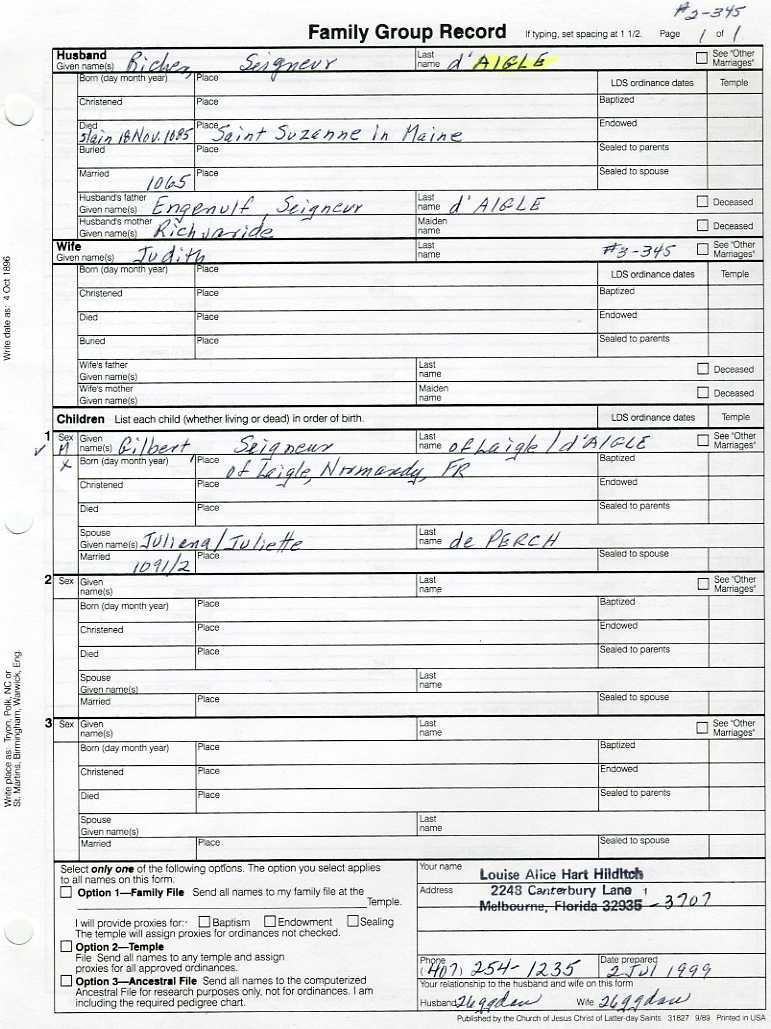 #2-345
Family Group Record If typing, set spacing at 1 1/2. Page 1 of 1
Husband
Given name(s) Richer, Seigneur Last name d'AIGLE See "Other Marriages"
Born (day month year) Place LDS ordinance dates Temple
Christened Place Baptized
Died slain 18 Nov. 1085 Place Saint Suzanne in Maine Endowed
Buried Place Sealed to parents
Married 1065 Place Sealed to spouse
Husband's father Given name(s) Engenulf, Seigneur Last name d'AIGLE Deceased
Husband's mother Given name(s) Richvaride Maiden name Deceased
Wife
Given name(s) Judith Last name #3-345 See "Other Marriages"
Born (day month year) Place LDS ordinance dates Temple
Christened Place Baptized
Died Place Endowed
Buried Place Sealed to parents
Wife's father Given name(s) Last name Deceased
Wife's mother Given name(s) Maiden name Deceased
Children List each child (whether living or dead) in order of birth. LDS ordinance dates Temple
1 Sex M Given name(s) Gilbert Seigneur Last name of Laigle/d'AIGLE See "Other Marriages"
X Born (day month year) Place of Laigle, Normandy, FR Baptized
Christened Place Endowed
Died Place Sealed to parents
Spouse Given name(s) Juliana/Juliette Last name de PERCH
Married 1091/2 Place Sealed to spouse
2 Sex Given name(s) Last name See "Other Marriages"
Born (day month year) Place Baptized
Christened Place Endowed
Died Place Sealed to parents
Spouse Given name(s) Last name
Married Place Sealed to spouse
3 Sex Given name(s) Last name See "Other Marriages"
Born (day month year) Place Baptized
Christened Place Endowed
Died Place Sealed to parents
Spouse Given name(s) Last name
Married Place Sealed to spouse
Write date as: 4 Oct 1896
Write place as: Tryon, Polk, NC or
St. Martins, Birmingham, Warwick, Eng.
Select only one of the following options. The option you select applies
to all names on this form.
Option 1—Family File Send all names to my family file at the
Temple.
I will provide proxies for: Baptism Endowment Sealing
The temple will assign proxies for ordinances not checked.
Option 2—Temple
File Send all names to any temple and assign
proxies for all approved ordinances.
Option 3—Ancestral File Send all names to the computerized
Ancestral File for research purposes only, not for ordinances. I am
including the required pedigree chart.
Your name Louise Alice Hart Hilditch
Address 2248 Canterbury Lane
Melbourne, Florida 32935-3707
Phone (407) 254-1235 Date prepared 2 Jul 1999
Your relationship to the husband and wife on this form
Husband 26ggdau Wife 26ggdau
Published by the Church of Jesus Christ of Latter-day Saints 31827 9/89 Printed in USA